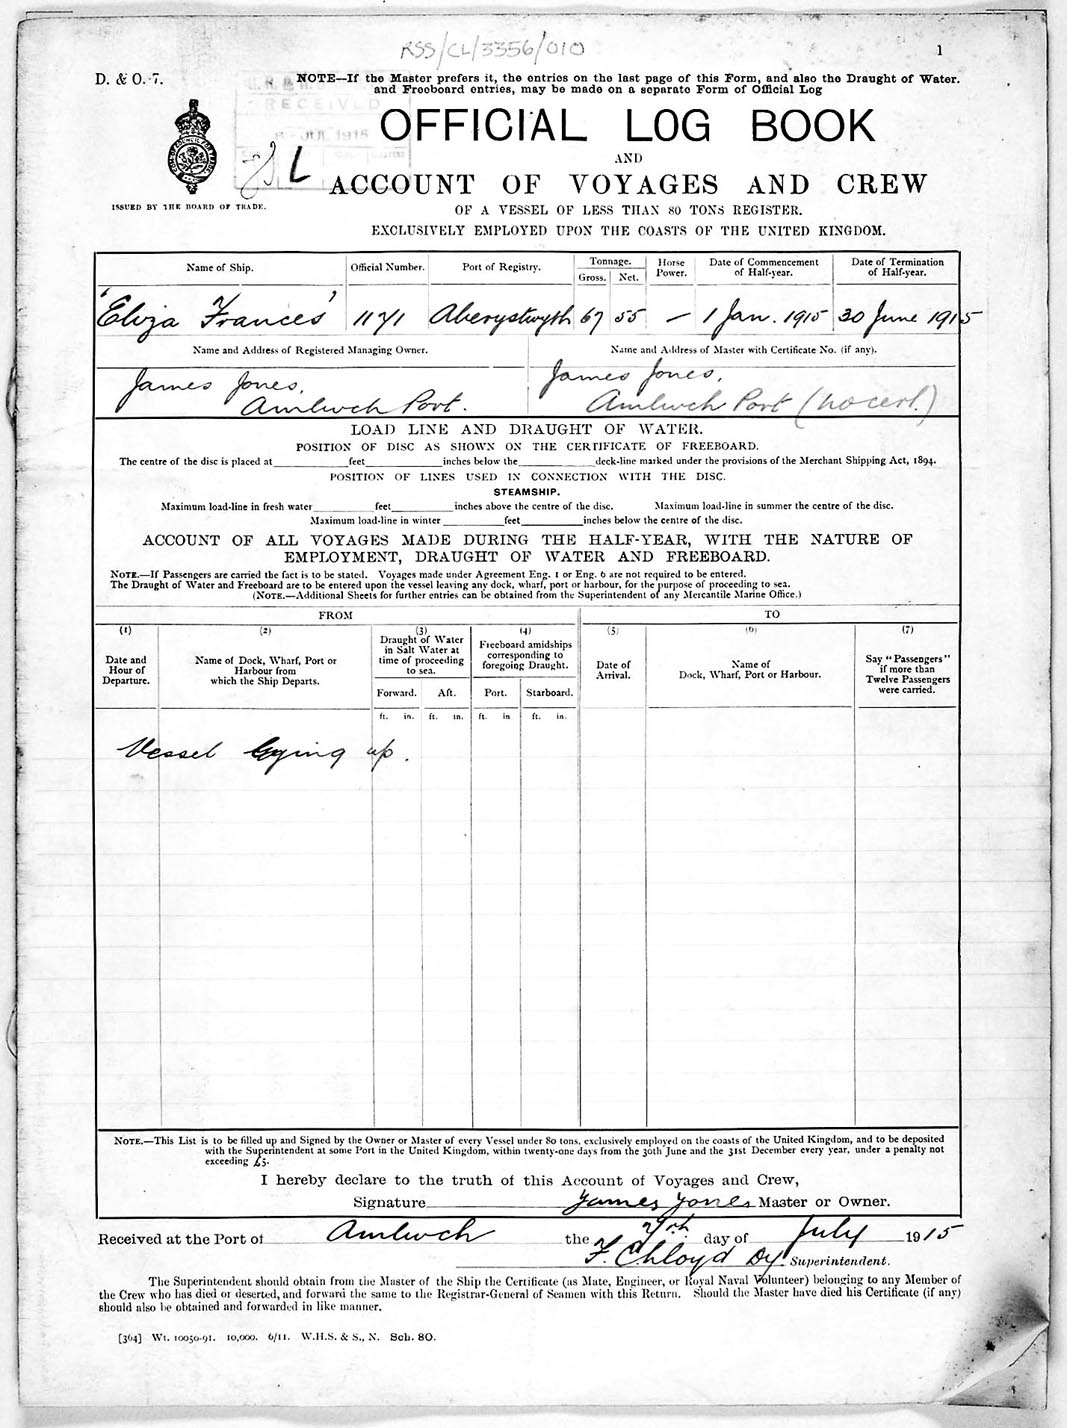 RSS/CL/3356/010
1
D. & O. 7.
NOTE—If the Master prefers it, the entries on the last page of this Form, and also the Draught of Water.
and Freeboard entries, may be made on a separate Form of Official Log
RECEIVED
JUL 1915
L
OFFICIAL LOG BOOK
AND
ACCOUNT OF VOYAGES AND CREW
ISSUED BY THE BOARD OF TRADE.
OF A VESSEL OF LESS THAN 80 TONS REGISTER.
EXCLUSIVELY EMPLOYED UPON THE COASTS OF THE UNITED KINGDOM.
Name of Ship. Official Number. Port of Registry. Tonnage. Gross. Net. Horse Power. Date of Commencement of Half-year. Date of Termination of Half-year.
'Eliza Frances' 1171 Aberystwyth 67 55 — 1 Jan. 1915 30 June 1915
Name and Address of Registered Managing Owner. Name and Address of Master with Certificate No. (if any).
James Jones, James Jones,
Amlwch Port. Amlwch Port (no cert.)
LOAD LINE AND DRAUGHT OF WATER.
POSITION OF DISC AS SHOWN ON THE CERTIFICATE OF FREEBOARD.
The centre of the disc is placed at feet inches below the deck-line marked under the provisions of the Merchant Shipping Act, 1894.
POSITION OF LINES USED IN CONNECTION WITH THE DISC.
STEAMSHIP.
Maximum load-line in fresh water feet inches above the centre of the disc. Maximum load-line in summer the centre of the disc.
Maximum load-line in winter feet inches below the centre of the disc.
ACCOUNT OF ALL VOYAGES MADE DURING THE HALF-YEAR, WITH THE NATURE OF
EMPLOYMENT, DRAUGHT OF WATER AND FREEBOARD.
NOTE.—If Passengers are carried the fact is to be stated. Voyages made under Agreement Eng. 1 or Eng. 6 are not required to be entered.
The Draught of Water and Freeboard are to be entered upon the vessel leaving any dock, wharf, port or harbour, for the purpose of proceeding to sea.
(NOTE.—Additional Sheets for further entries can be obtained from the Superintendent of any Mercantile Marine Office.)
FROM TO
(1) (2) (3) (4) (5) (6) (7)
Date and Hour of Departure.
Name of Dock, Wharf, Port or Harbour from which the Ship Departs.
Draught of Water in Salt Water at time of proceeding to sea.
Freeboard amidships corresponding to foregoing Draught.
Date of Arrival.
Name of Dock, Wharf, Port or Harbour.
Say "Passengers" if more than Twelve Passengers were carried.
Forward. Aft. Port. Starboard.
ft. in. ft. in. ft. in ft. in.
Vessel Lying up.
NOTE.—This List is to be filled up and Signed by the Owner or Master of every Vessel under 80 tons, exclusively employed on the coasts of the United Kingdom, and to be deposited
with the Superintendent at some Port in the United Kingdom, within twenty-one days from the 30th June and the 31st December every year, under a penalty not
exceeding £5.
I hereby declare to the truth of this Account of Voyages and Crew,
Signature James Jones Master or Owner.
Received at the Port of Amlwch the 7th day of July 1915
Dy. Superintendent.
The Superintendent should obtain from the Master of the Ship the Certificate (as Mate, Engineer, or Royal Naval Volunteer) belonging to any Member of
the Crew who has died or deserted, and forward the same to the Registrar-General of Seamen with this Return. Should the Master have died his Certificate (if any)
should also be obtained and forwarded in like manner.
[364] Wt. 10050-91. 10,000. 6/11. W.H.S. & S., N. Sch. 80.